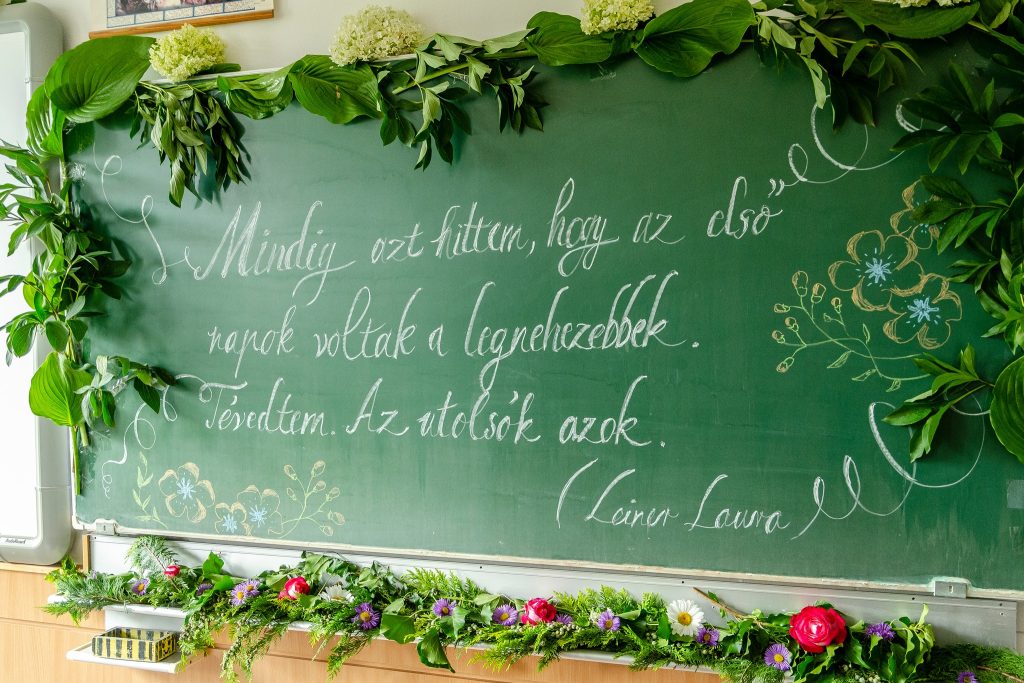 Mindig azt hittem, hogy az első"
napok voltak a legnehezebbek.
Tévedtem. Az utolsók azok.
(Leiner Laura)